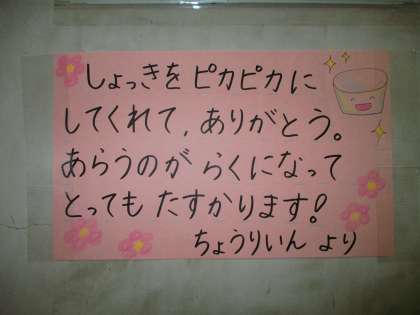 しょっきを ピカピカに
してくれて、ありがとう。
あらうのが らくになって
とっても たすかります!
ちょうりいん より